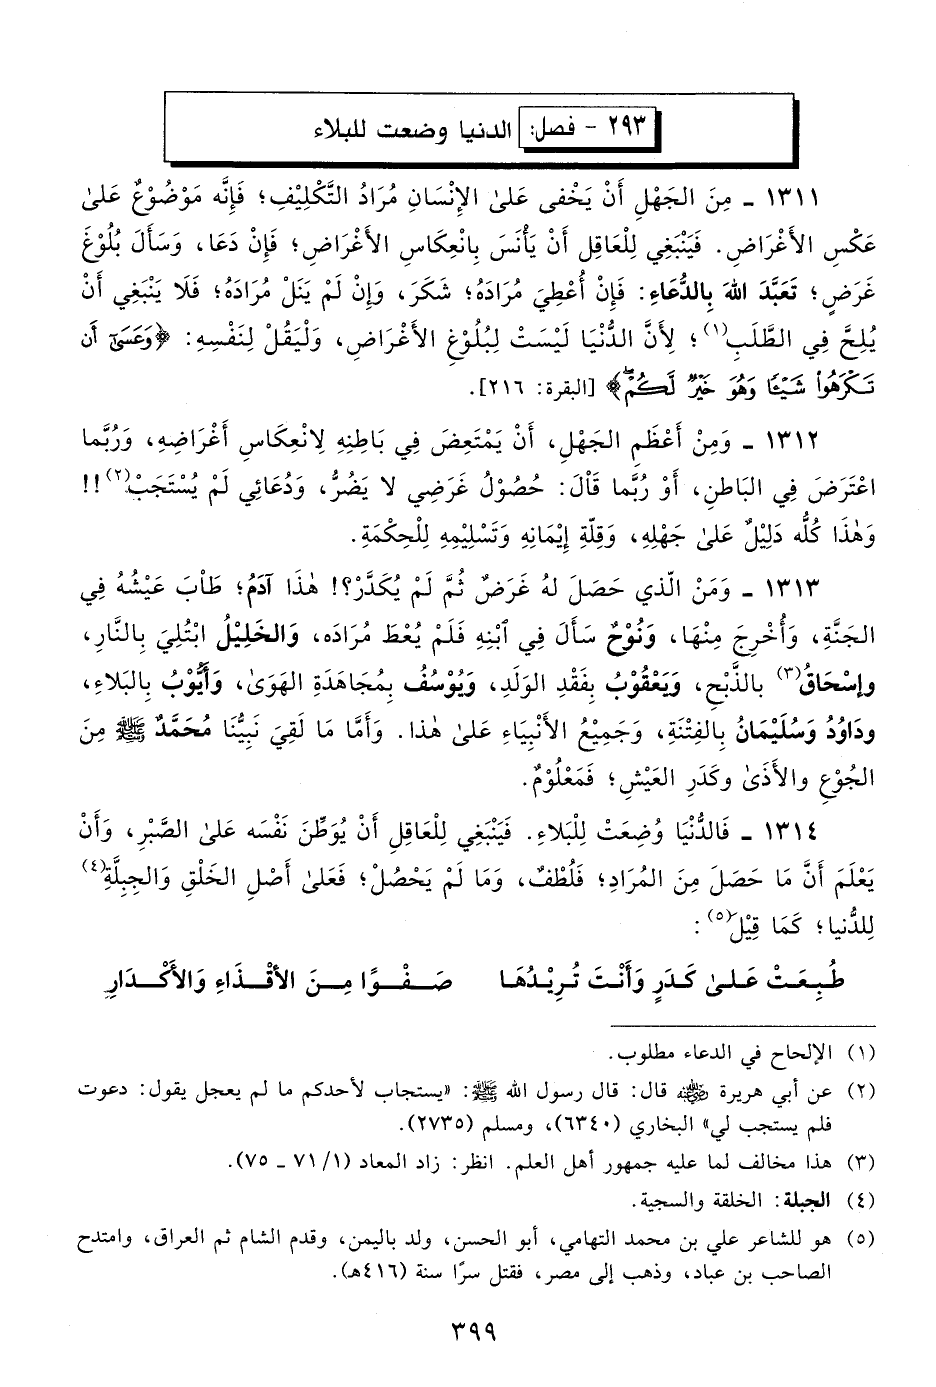 ٢٩٣ - فصل: الدنيا وضعت للبلاء
١٣١١ ـ مِنَ الجَهْلِ أَنْ يَخْفى عَلىٰ الإِنْسَانِ مُرَادُ التَّكْلِيْفِ؛ فَإِنَّه مَوْضُوْعٌ عَلىٰ
عَكْسِ الأَغْرَاضِ. فَيَنْبَغِي لِلْعَاقِلِ أَنْ يَأْنَسَ بِانْعِكَاسِ الأَغْرَاضِ؛ فَإِنْ دَعَا، وَسَأَلَ بُلُوْغَ
غَرَضٍ؛ تَعَبَّدَ اللهَ بِالدُّعَاءِ: فَإِنْ أُعْطِيَ مُرَادَهُ؛ شَكَرَ، وَإِنْ لَمْ يَنَلْ مُرَادَهُ؛ فَلَا يَنْبَغِي أَنْ
يُلِحَّ فِي الطَّلَبِ(١)؛ لِأَنَّ الدُّنْيَا لَيْسَتْ لِبُلُوْغِ الأَغْرَاضِ، وَلْيَقُلْ لِنَفْسِهِ: ﴿وَعَسَىٰٓ أَن
تَكْرَهُوا۟ شَيْـًٔا وَهُوَ خَيْرٌ لَّكُمْ ۖ﴾ [البقرة: ٢١٦].
١٣١٢ ـ وَمِنْ أَعْظَمِ الجَهْلِ، أَنْ يَمْتَعِضَ فِي بَاطِنِهِ لِانْعِكَاسِ أَغْرَاضِهِ، وَرُبَّما
اعْتَرَضَ فِي البَاطنِ، أَوْ رُبَّما قَالَ: حُصُوْلُ غَرَضِي لا يَضُرُّ، وَدُعَائِي لَمْ يُسْتَجَبْ(٢)!!
وَهٰذَا كُلُّه دَلِيْلٌ عَلىٰ جَهْلِهِ، وَقِلَّةِ إِيْمَانِهِ وَتَسْلِيْمِهِ لِلْحِكْمَةِ.
١٣١٣ ـ وَمَنْ الّذي حَصَلَ لهُ غَرَضٌ ثُمَّ لَمْ يُكَدَّرْ؟! هٰذَا آدَمُ؛ طَاْبَ عَيْشُهُ فِي
الجَنَّةِ، وَأُخْرِجَ مِنْهَا، وَنُوْحٌ سَأَلَ فِي ابْنِهِ فَلَمْ يُعْطَ مُرَادَه، وَالخَلِيْلُ ابْتُلِيَ بِالنَّارِ،
وإسْحَاقُ(٣) بالذَّبْحِ، وَيَعْقُوْبُ بِفَقْدِ الوَلَدِ، وَيُوْسُفُ بِمُجَاهَدَةِ الهَوَىٰ، وَأَيُّوْبُ بِالبَلَاءِ،
ودَاوُدُ وَسُلَيْمَانُ بِالفِتْنَةِ، وَجَمِيْعُ الأَنْبِيَاءِ عَلىٰ هٰذا. وَأَمَّا مَا لَقِيَ نَبِيُّنَا مُحَمَّدٌ ﷺ مِنَ
الجُوْعِ والأَذَىٰ وكَدَرِ العَيْشِ؛ فَمَعْلُوْمٌ.
١٣١٤ ـ فَالدُّنْيَا وُضِعَتْ لِلْبَلَاءِ. فَيَنْبَغِي لِلْعَاقِلِ أَنْ يُوَطِّنَ نَفْسَه عَلىٰ الصَّبْرِ، وَأَنْ
يَعْلَمَ أَنَّ مَا حَصَلَ مِنَ المُرَادِ؛ فَلُطْفٌ، وَمَا لَمْ يَحْصُلْ؛ فَعَلىٰ أَصْلِ الخَلْقِ وَالجِبِلَّةِ(٤)
لِلدُّنيا؛ كَمَا قِيْلَ(٥):
طُبِعَتْ عَلىٰ كَدَرٍ وَأَنْتَ تُرِيْدُهَا صَفْوًا مِنَ الأَقْذَاءِ وَالأَكْدَارِ
(١) الإلحاح في الدعاء مطلوب.
(٢) عن أبي هريرة رضي الله عنه قال: قال رسول الله ﷺ: «يستجاب لأحدكم ما لم يعجل يقول: دعوت
فلم يستجب لي» البخاري (٦٣٤٠)، ومسلم (٢٧٣٥).
(٣) هذا مخالف لما عليه جمهور أهل العلم. انظر: زاد المعاد (٧١/١ ـ ٧٥).
(٤) الجبلة: الخلقة والسجية.
(٥) هو للشاعر علي بن محمد التهامي، أبو الحسن، ولد باليمن، وقدم الشام ثم العراق، وامتدح
الصاحب بن عباد، وذهب إلى مصر، فقتل سرًا سنة (٤١٦هـ).
٣٩٩